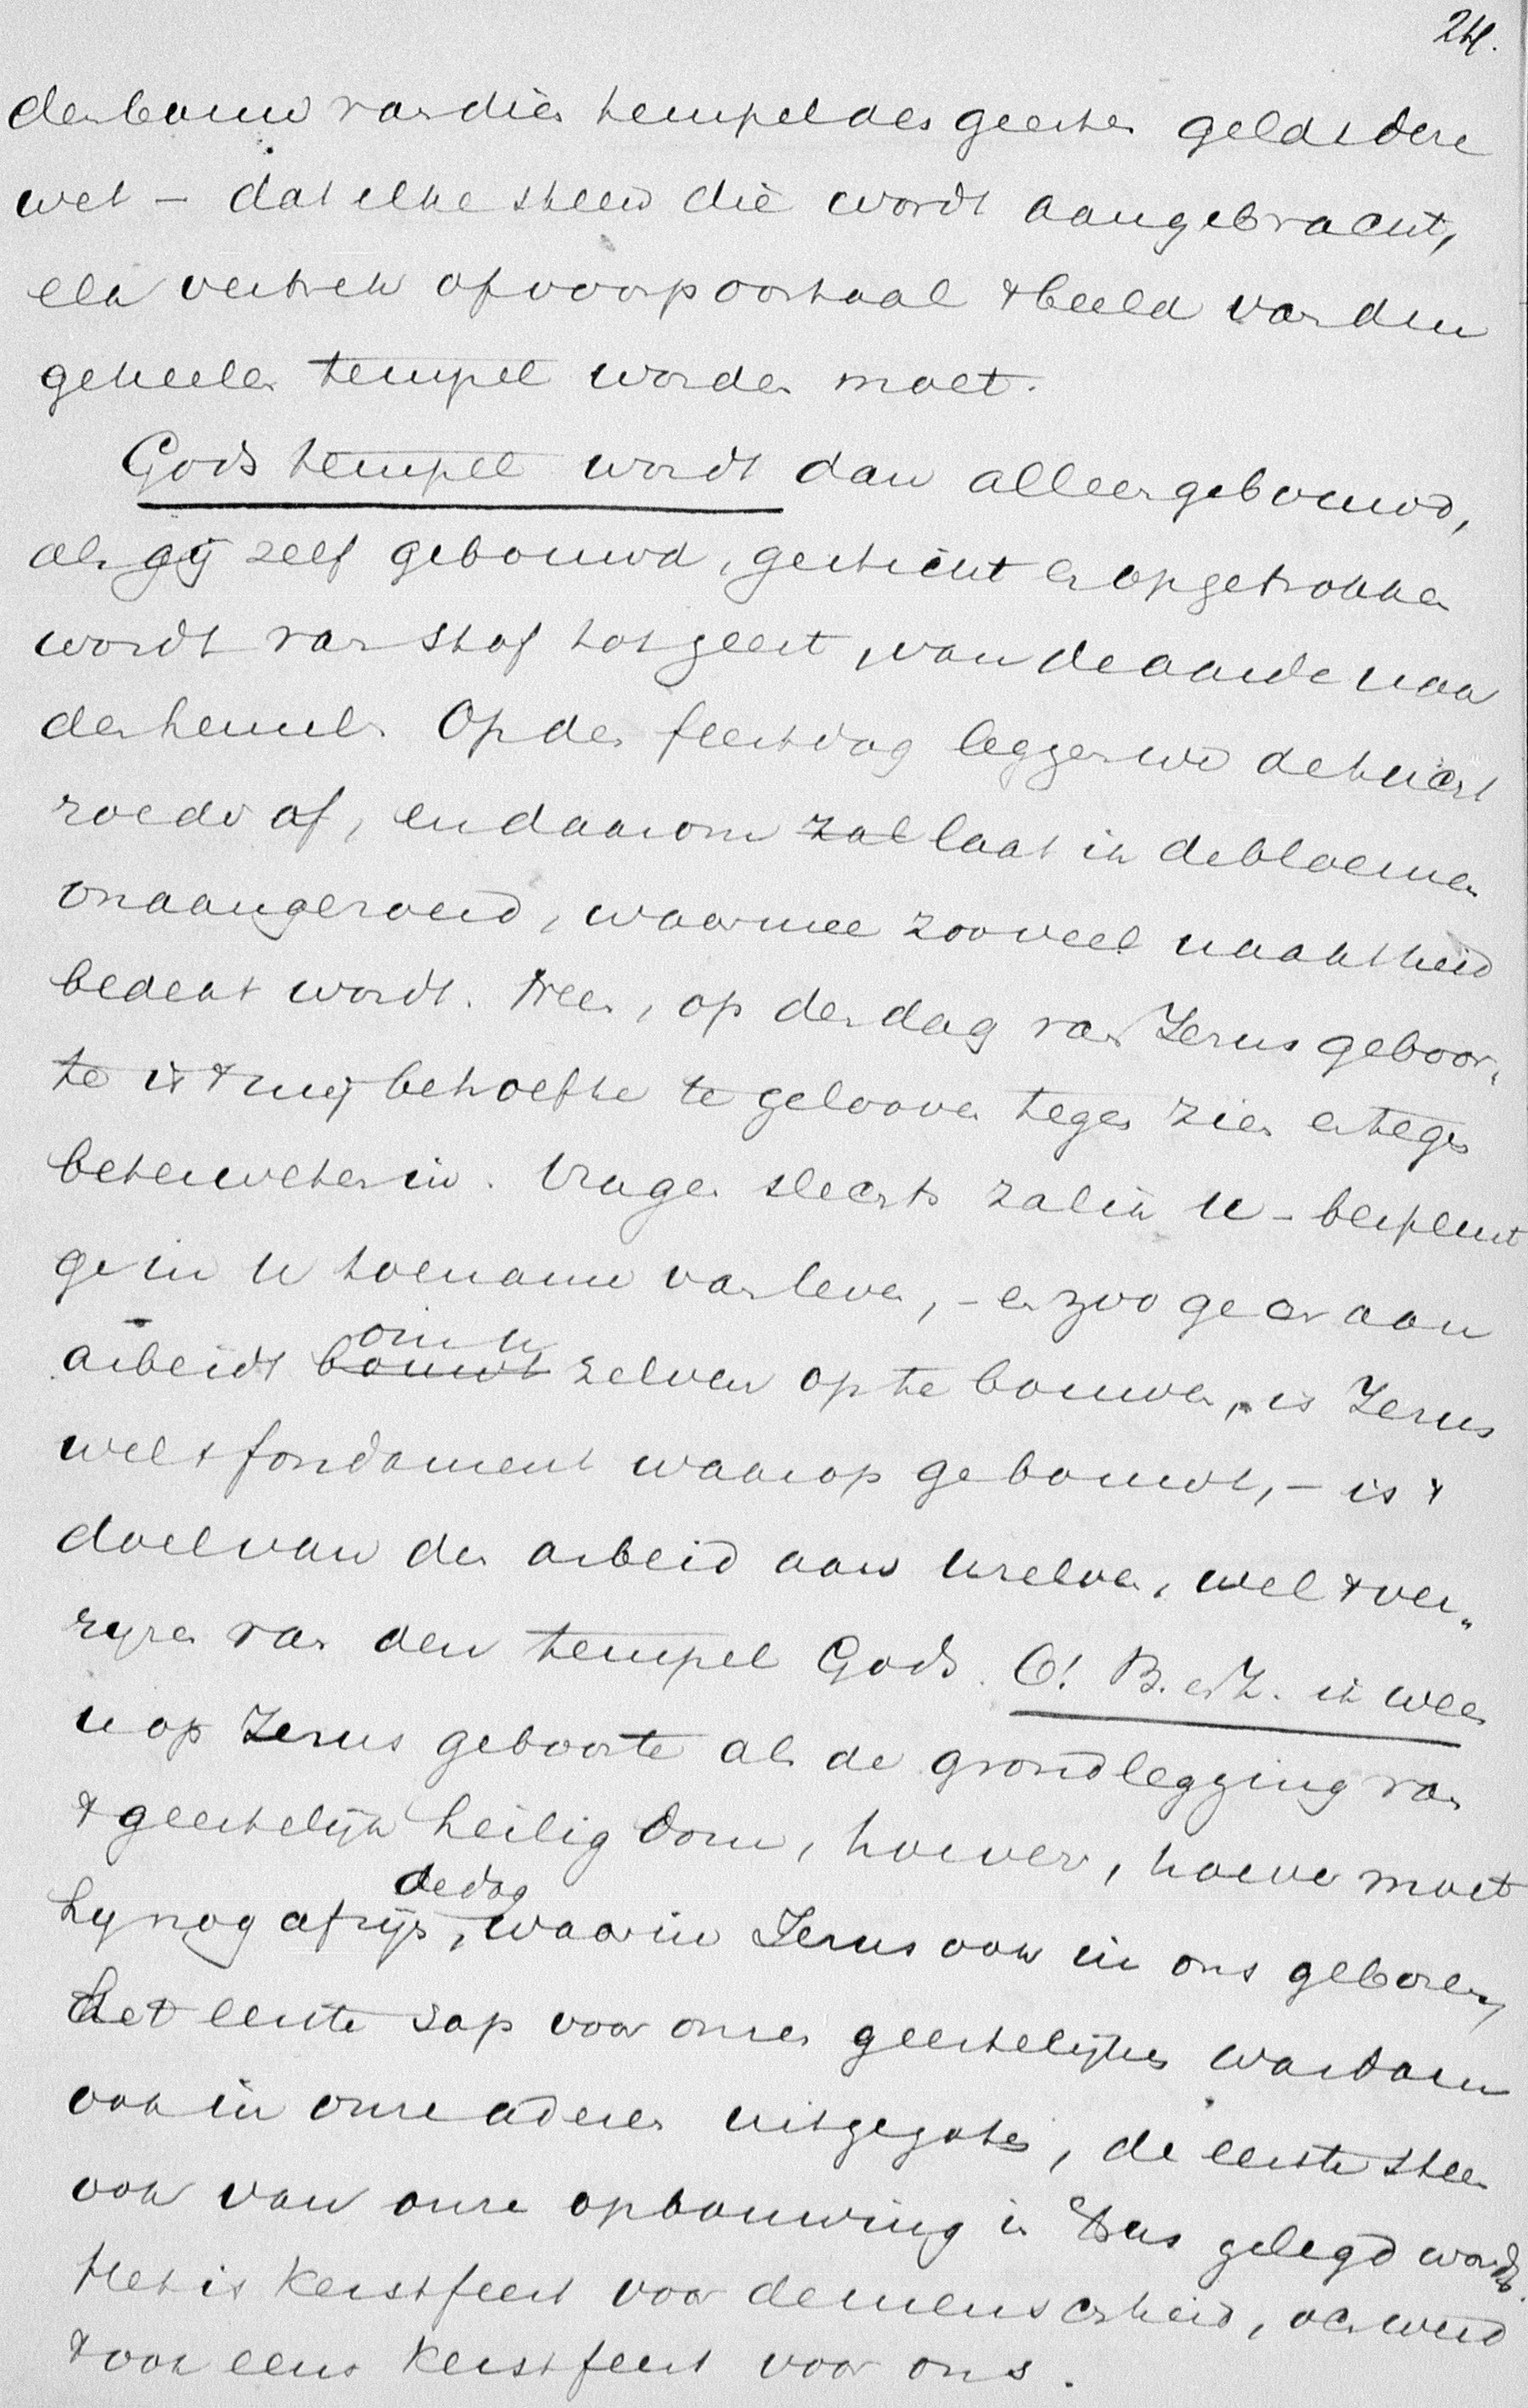 24.
den bouw van dien tempel des geestes geldt deze
wet – dat elke steen die wordt aangebracht,
elk vertrek of voorpoortaal 't beeld van den
geheelen tempel worden moet.
Gods tempel wordt dan alleen gebouwd,
als gij zelf gebouwd, gesticht en opgetrokken
wordt van stof tot geest, van de aarde naar
den hemel. Op den feestdag leggen we de tucht
roede af, en daarom zal laat ik de bloemen
onaangeroerd, waarmee zooveel naaktheid
bedekt wordt. Neen, op den dag van Jezus geboor„
te is 't mij behoefte te gelooven tegen zien en tegen
beterweten in. Vragen slechts zal ik u – bespeurt
ge in u toename van leven, – en zoo ge er aan
arbeidt bouwt om u zelven op te bouwen, is Jezus
wel 't fondament waarop ge bouwt, – is 't
doel van den arbeid aan uzelven, wel 't ver„
rijzen van den tempel Gods. O! B. en Z. ik wees
u op Jezus geboorte als de grondlegging van
't geestelijk heiligdom, hoever, hoever moet
hij nog af zijn, de dag waarin Jezus ook in ons geboren,
het eerste sap voor onzen geestelijken wasdom
ook in onze aderen uitgegoten, de eerste steen
ook van onze opbouwing in Jezus gelegd wordt.
Het is Kerstfeest voor de menschheid, och werd
't ook eens Kerstfeest voor ons.